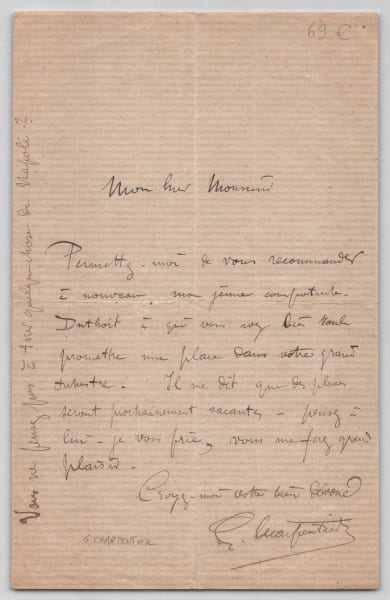 69 €
Mon cher Monsieur
Permettez-moi de vous recommander
à nouveau, mon jeune compatriote.
Duthoit à qui vous avez bien voulu
promettre une place dans votre grand
orchestre. Il me dit que des places
seront prochainement vacantes - pensez à
lui - je vous prie, vous me ferez grand
plaisir.
Croyez-moi votre bien dévoué
G. Charpentier
G. CHARPENTIER
Vous ne pensez pas à tirer quelque chose de Napoli ?